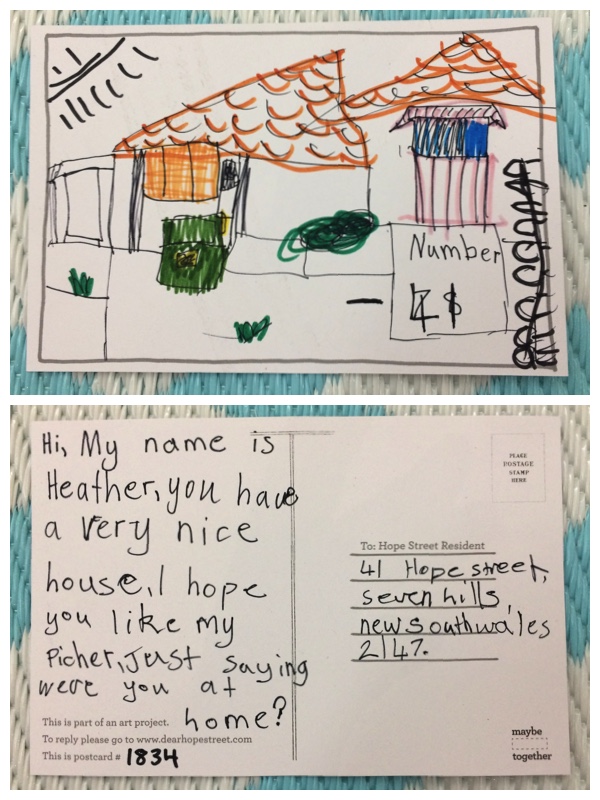 Number
Hi, My name is
Heather, you have
a very nice
house, I hope
you like my
Picher, Just saying
were you at
home?
This is part of an art project.
To reply please go to www.dearhopestreet.com
This is postcard # 1834
PLACE
POSTAGE
STAMP
HERE
To: Hope Street Resident
41 Hope street,
seven hills,
new southwales
2147.
maybe
together